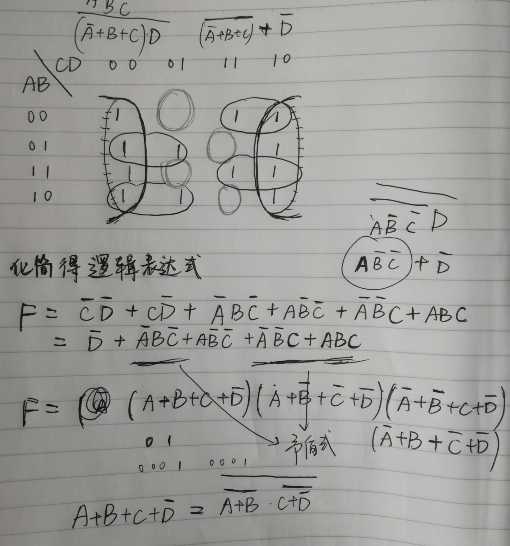 A B C
(Ā+B+C)·D   (Ā+B+C) + D̄
AB CD 00 01 11 10
00 1 1 1
01 1 1 1
11 1 1 1
10 1 1 1
A B̄ C̄ D
A B̄ C̄ + D̄
化简得逻辑表达式
F = C̄D̄ + CD̄ + ĀBC̄ + AB̄C̄ + ĀB̄C + ABC
= D̄ + ĀBC̄ + AB̄C̄ + ĀB̄C + ABC
F = (A+B+C+D̄)(A+B̄+C̄+D̄)(Ā+B̄+C+D̄)
(Ā+B+C̄+D̄)
01
0001 0001
A+B+C+D̄ = A+B · C+D̄